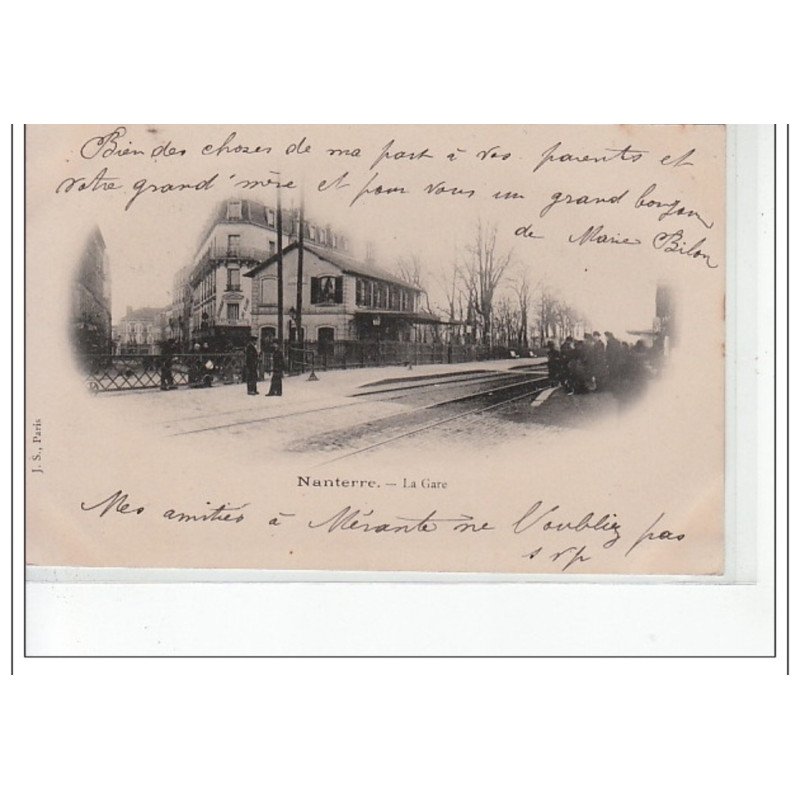 Bien des choses de ma part à vos parents et
votre grand'mère et pour vous un grand bonjour
de Marie Bilon
J. S., Paris
Nanterre. — La Gare
Mes amitiés à Mérante ne l'oubliez pas
svp